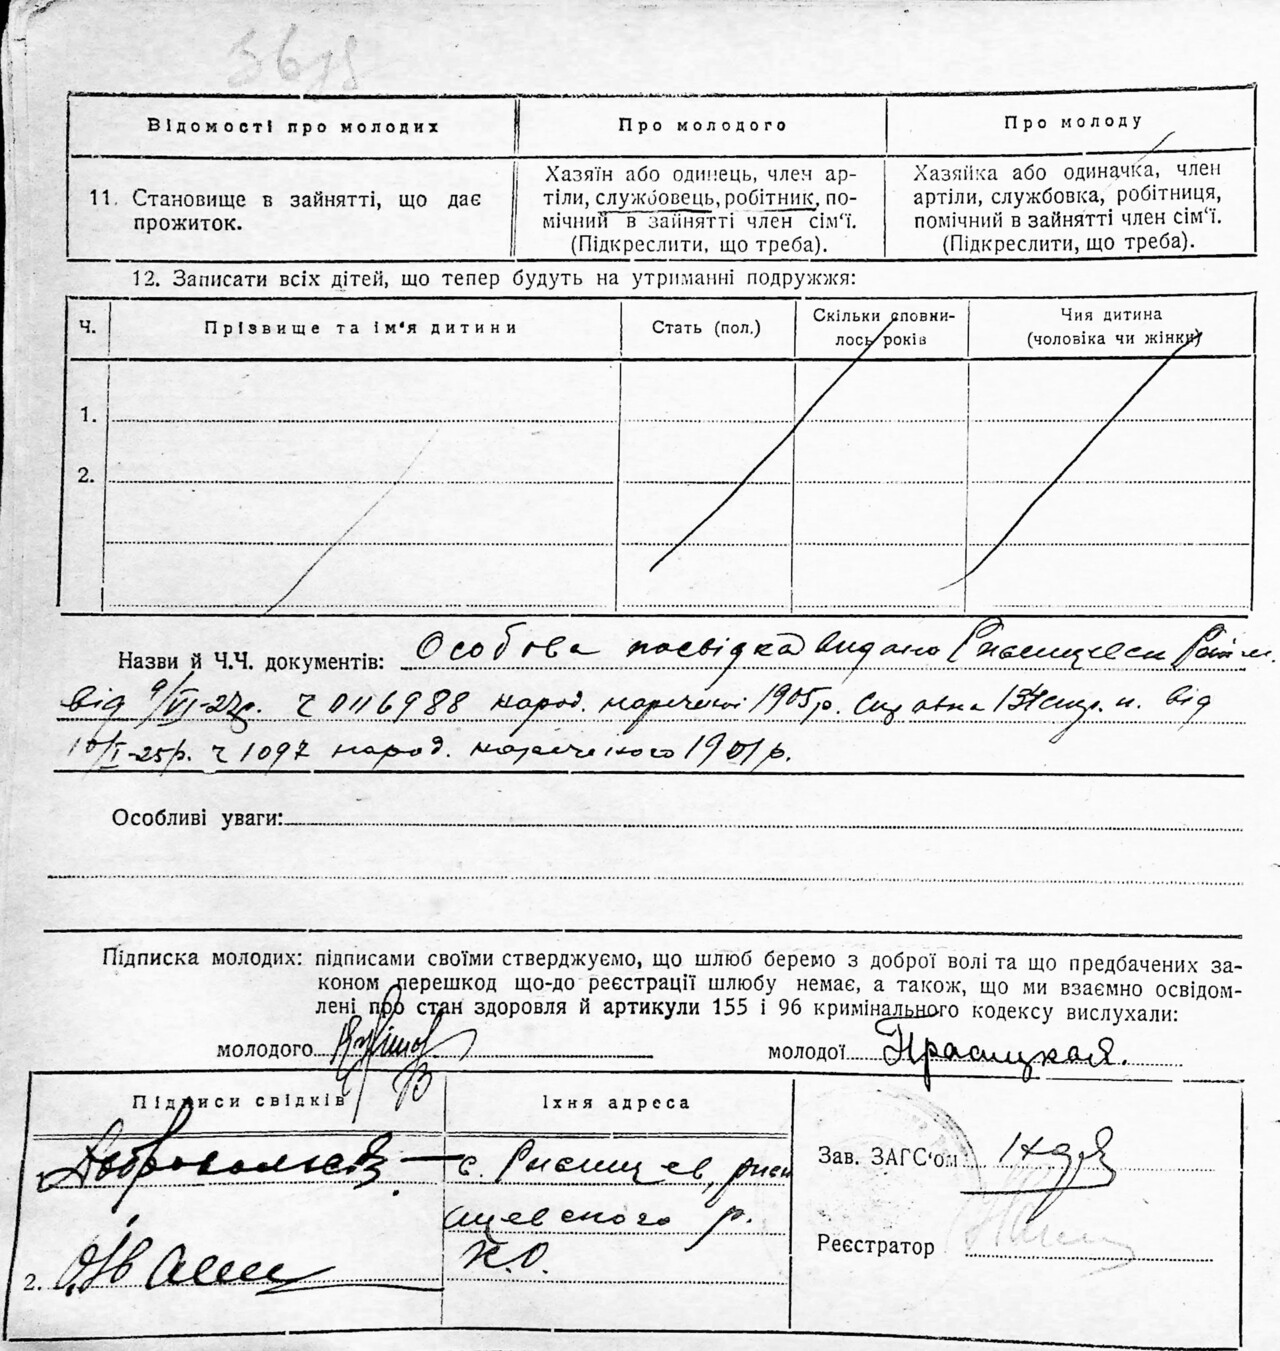 Відомості про молодих
Про молодого
Про молоду
11. Становище в зайнятті, що дає
прожиток.
Хазяїн або одинець, член ар-
тіли, службовець, робітник, по-
мічний в зайнятті член сім'ї.
(Підкреслити, що треба).
Хазяйка або одиначка, член
артіли, службовка, робітниця,
помічний в зайнятті член сім'ї.
(Підкреслити, що треба).
12. Записати всіх дітей, що тепер будуть на утриманні подружжя:
Ч.
Прізвище та ім'я дитини
Стать (пол.)
Скільки сповни-
лось років
Чия дитина
(чоловіка чи жінки)
1.
2.
Назви й Ч.Ч. документів: Особова посвідка видана
від 9/VI-27р. Ч 0116988 народ. нареченої 1905р. Справка від
10/I-25р. Ч 1097 народ. нареченого 1901р.
Особливі уваги:
Підписка молодих: підписами своїми стверджуємо, що шлюб беремо з доброї волі та що предбачених за-
коном перешкод що-до реєстрації шлюбу немає, а також, що ми взаємно освідом-
лені про стан здоровля й артикули 155 і 96 кримінального кодексу вислухали:
молодого
молодої
Підписи свідків
Їхня адреса
с. Ржищев, ржи
щевского р.
К.О.
2.
Зав. ЗАГС'ом
Реєстратор